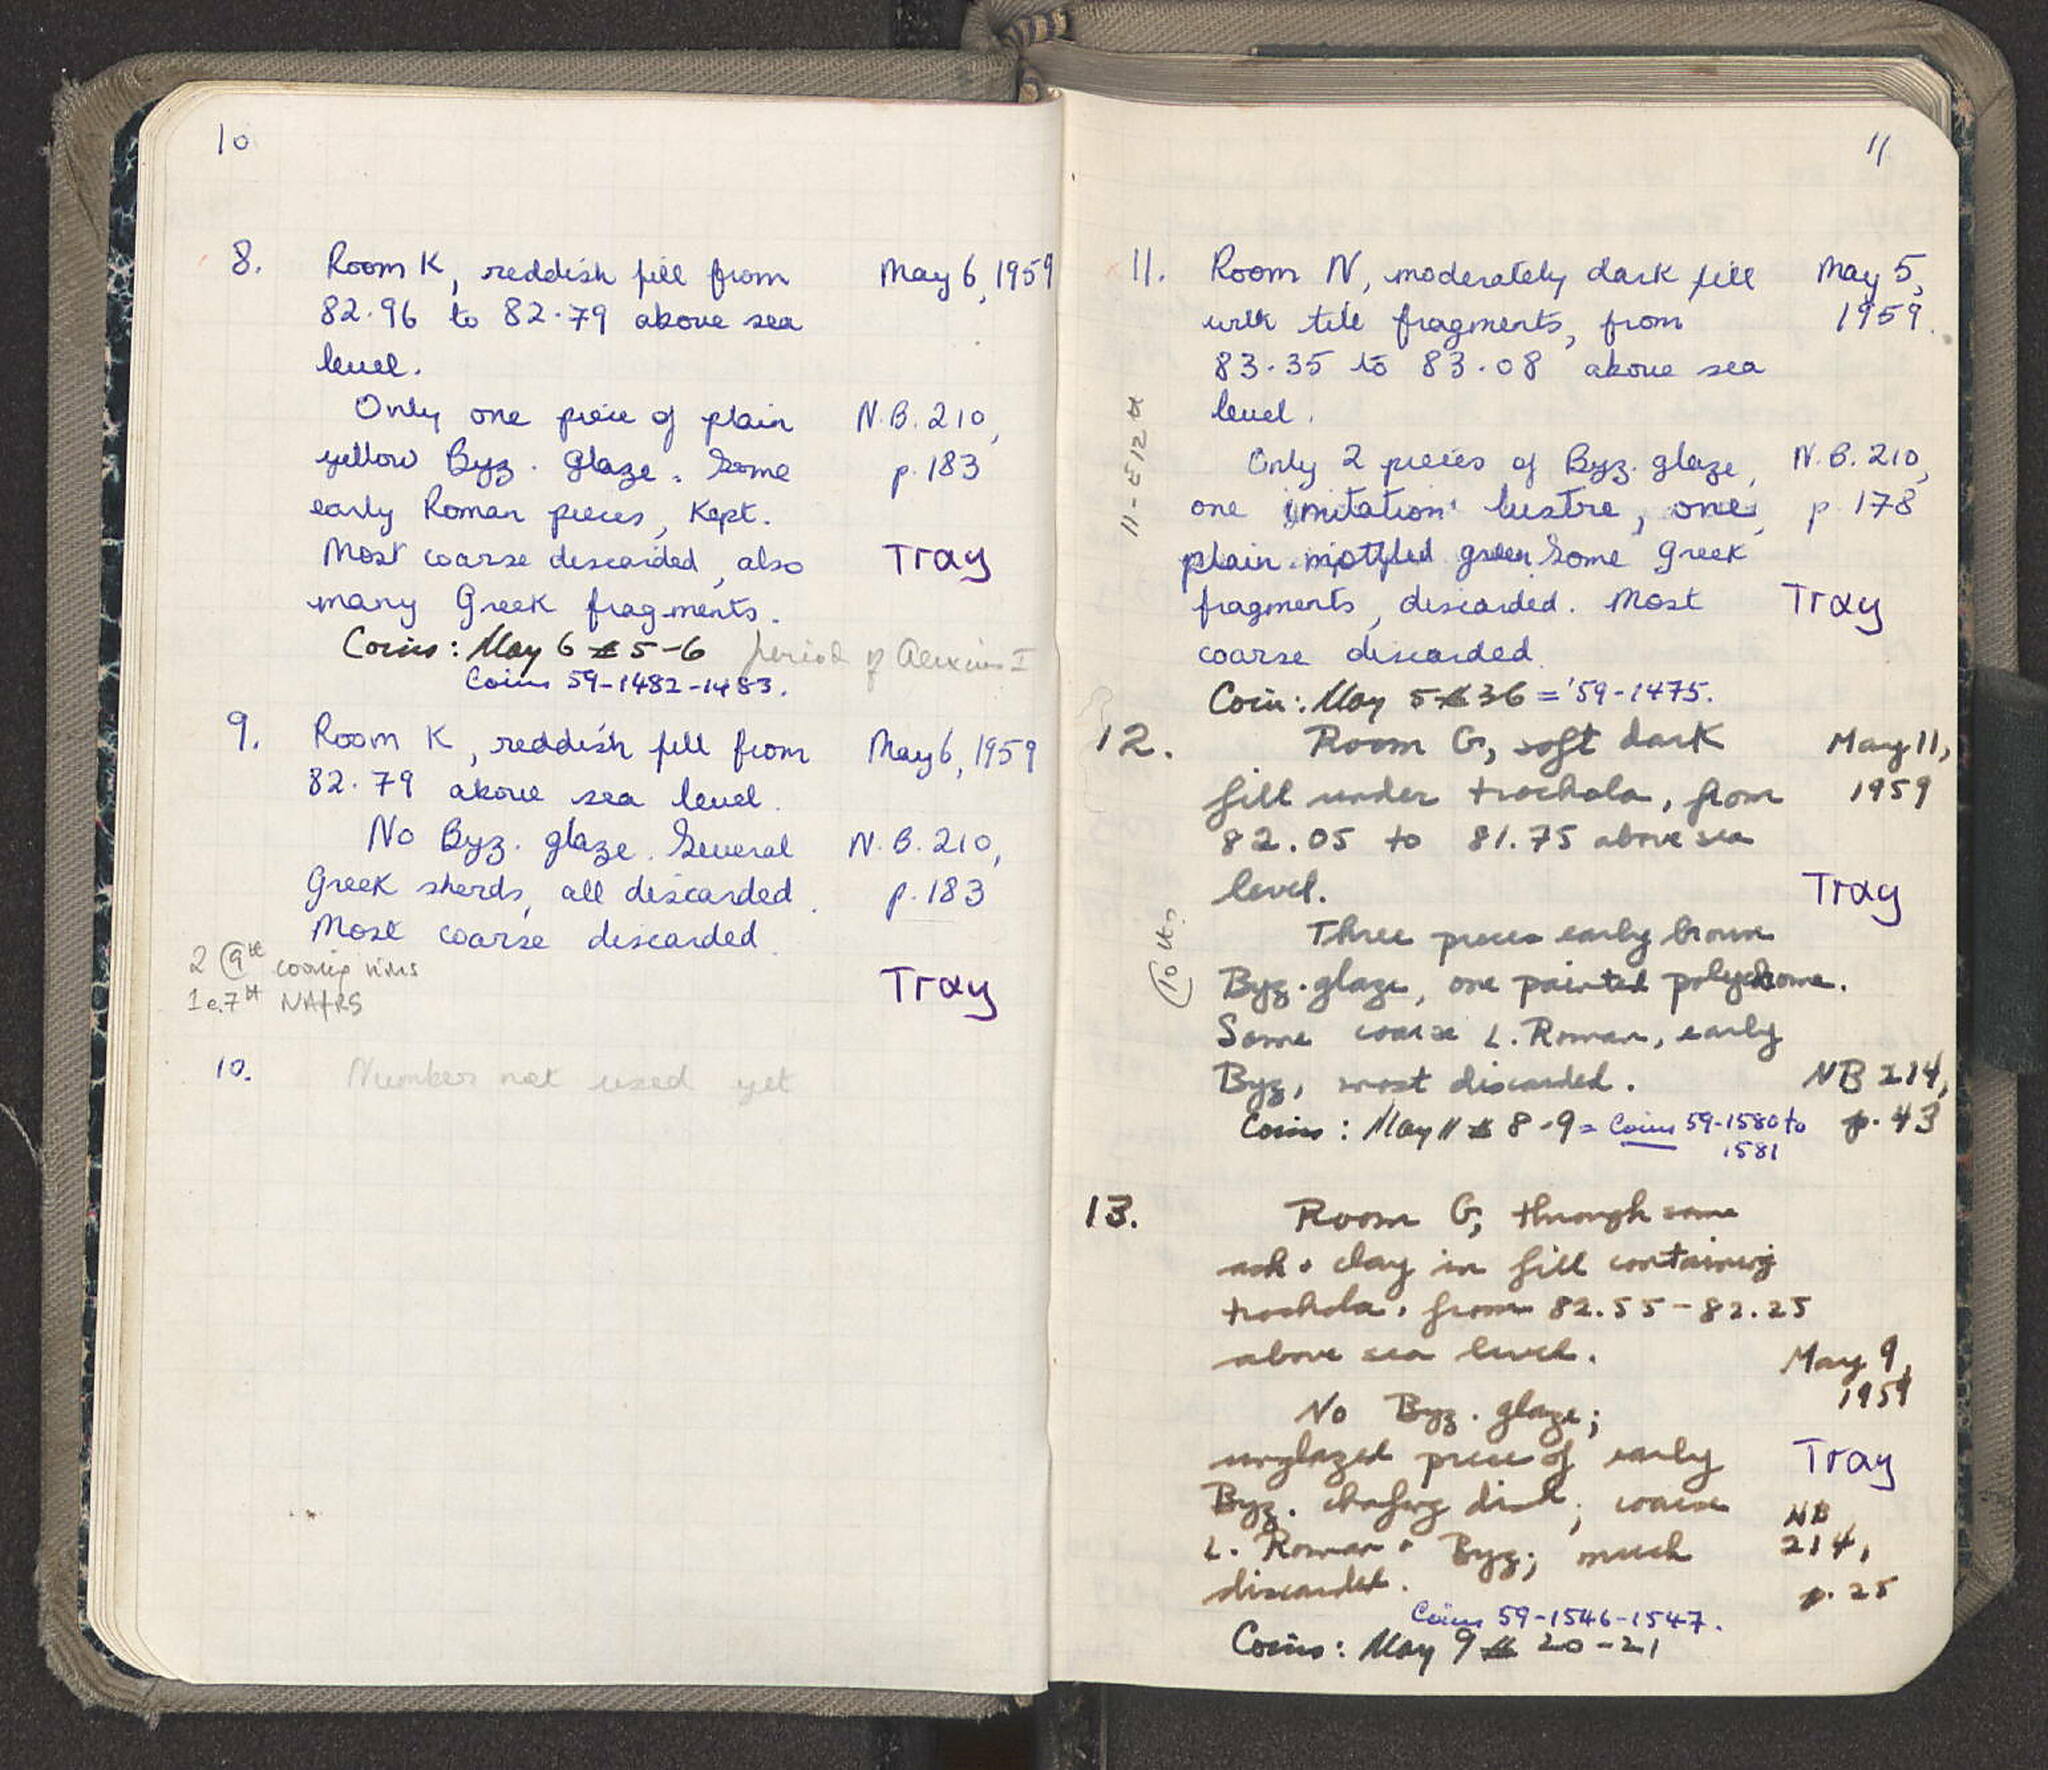 10
8. Room K, reddish fill from May 6, 1959
82.96 to 82.79 above sea
level.
Only one piece of plain N.B. 210,
yellow Byz. glaze. Some p. 183
early Roman pieces, kept.
Most coarse discarded, also Tray
many Greek fragments.
Coins: May 6 # 5-6 period of Alexius I
Coins 59-1482-1483.
9. Room K, reddish fill from May 6, 1959
82.79 above sea level.
No Byz. glaze. Several N.B. 210,
Greek sherds, all discarded. p. 183
Most coarse discarded.
2 9th cooking rims
1 e. 7th Tray
10. Number not used yet
11
11. Room N, moderately dark fill May 5,
with tile fragments, from 1959.
83.35 to 83.08 above sea
level.
11-E12th
Only 2 pieces of Byz. glaze, N.B. 210,
one imitation lustre, one, p. 178
plain mottled green. Some Greek
fragments, discarded. Most Tray
coarse discarded.
Coin: May 5 # 36 = '59-1475.
12. Room G, soft dark May 11,
fill under trochala, from 1959
82.05 to 81.75 above sea
level. Tray
10th
Three pieces early brown
Byz. glaze, one painted polychrome.
Some coarse L. Roman, early
Byz, most discarded. NB 214,
Coins: May 11 # 8-9 = Coins 59-1580 to p. 43
1581
13. Room G, through some
ash + clay in fill containing
trochala, from 82.55-82.25
above sea level. May 9,
1959
No Byz. glaze;
unglazed piece of early Tray
Byz. chafing dish; coarse NB
L. Roman + Byz; much 214,
discarded. p. 25
Coins 59-1546-1547.
Coins: May 9 # 20-21